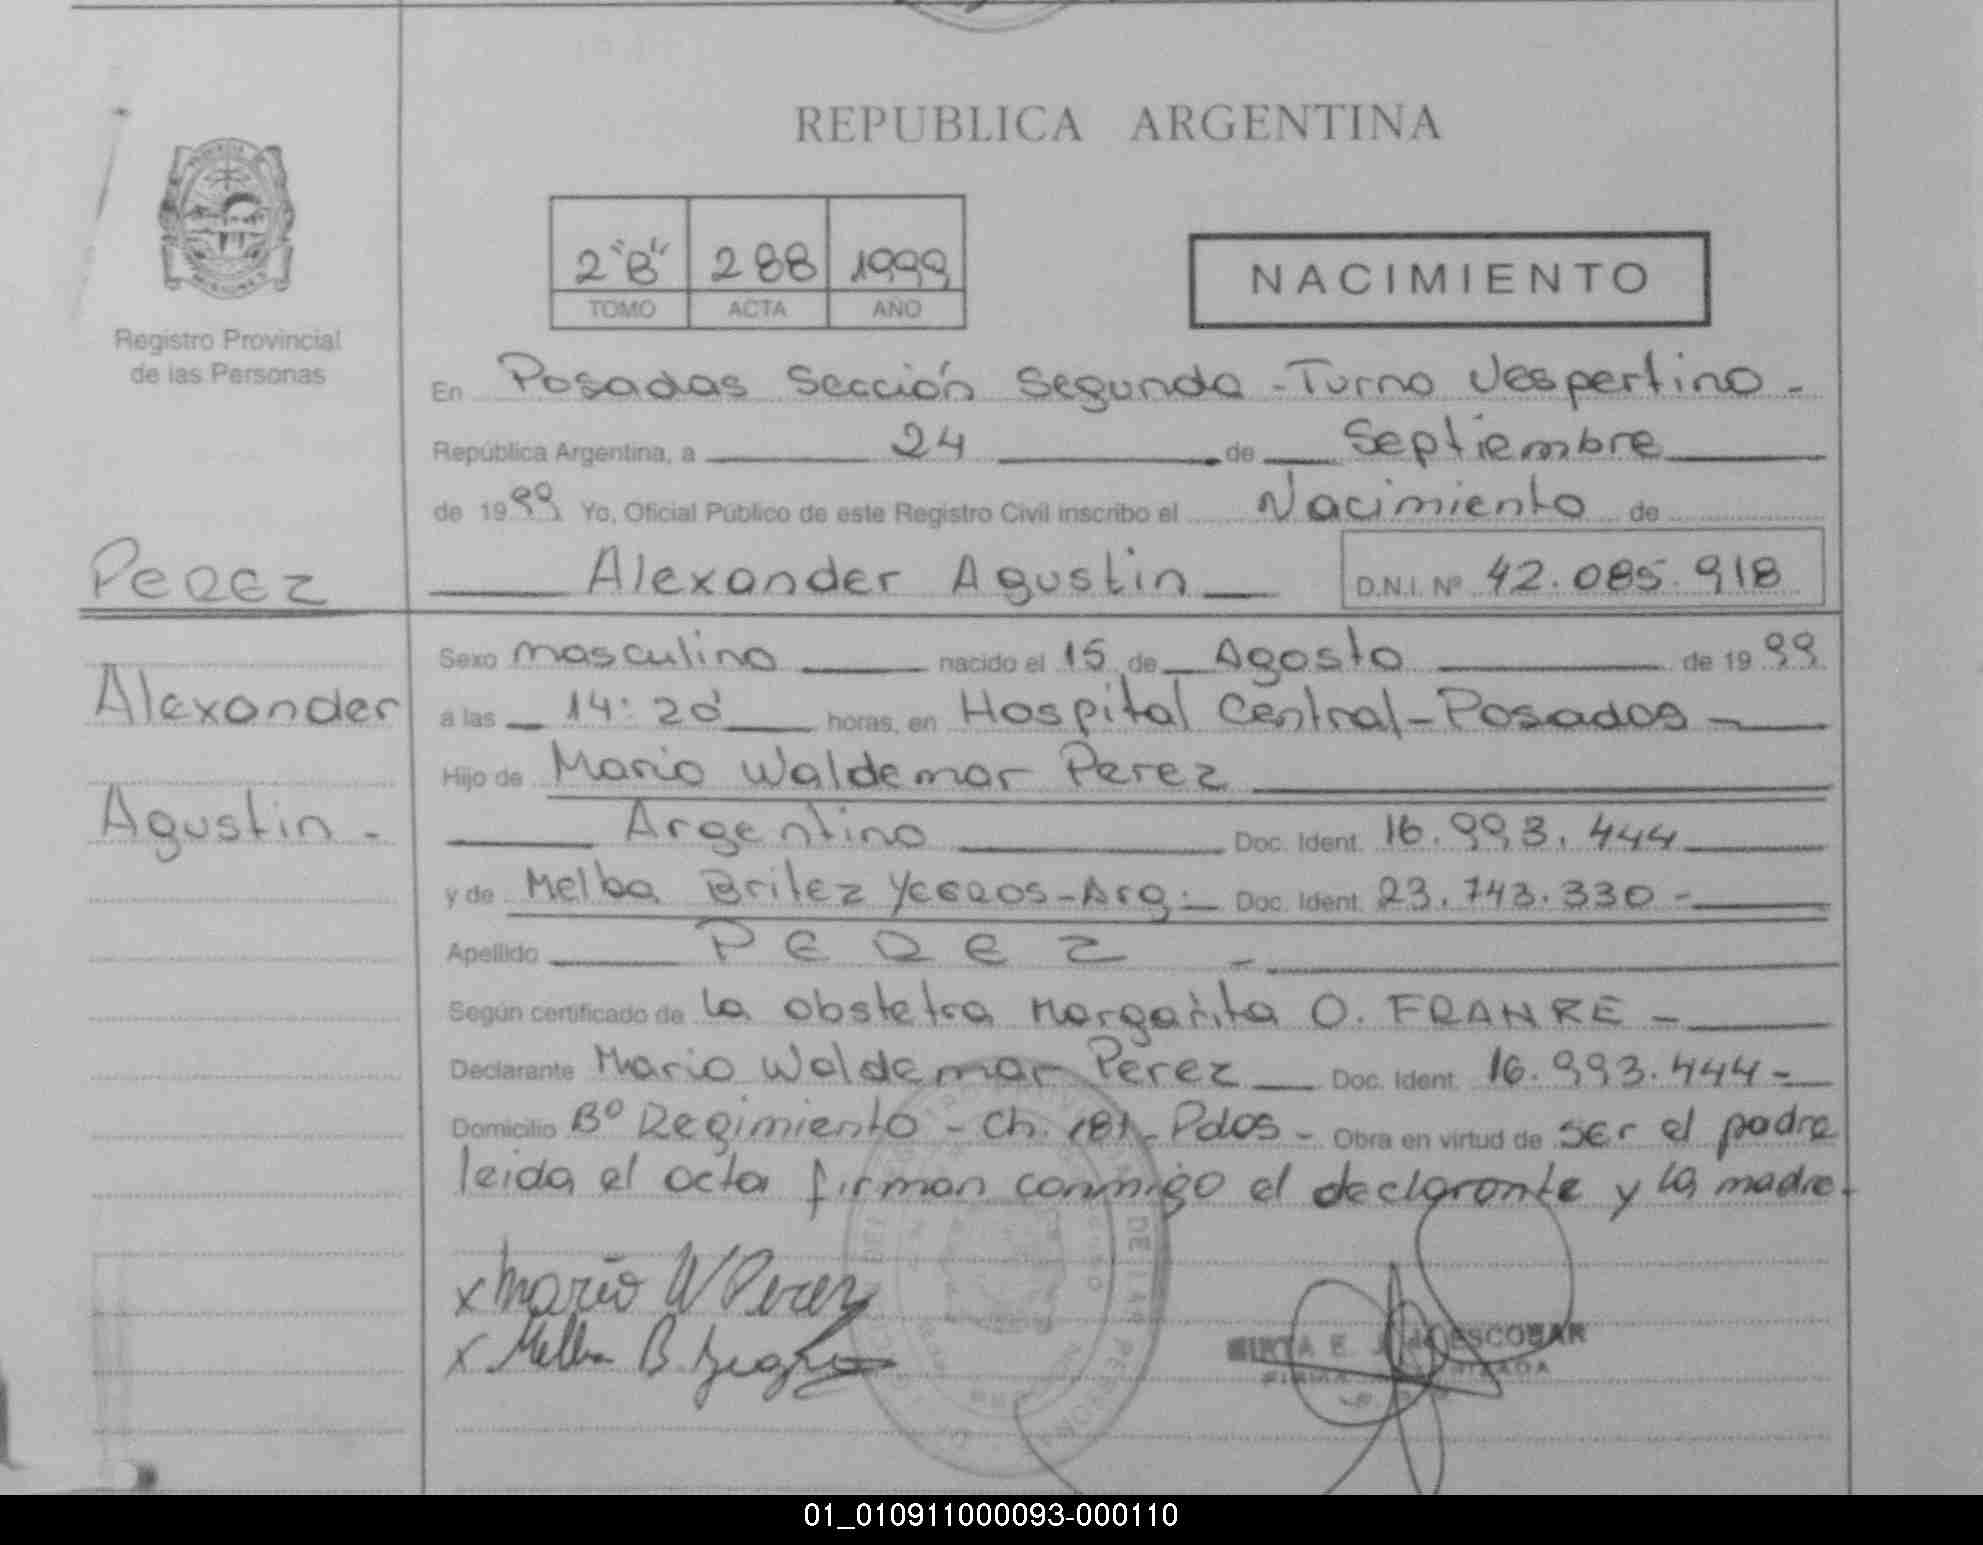 REPUBLICA ARGENTINA
2 "B" 288 1999
TOMO ACTA AÑO
NACIMIENTO
Registro Provincial
de las Personas
En Posadas Sección Segunda - Turno Vespertino -
República Argentina, a 24 de Septiembre
de 1999 Yo, Oficial Público de este Registro Civil inscribo el Nacimiento de
Alexander Agustin D.N.I. Nº 42.085.918
PEREZ
Alexander
Agustin -
Sexo masculino nacido el 15 de Agosto de 1999
a las 14:20 horas, en Hospital Central - Posadas -
Hijo de Mario Waldemar Perez
Argentino Doc. Ident. 16.993.444
y de Melba Britez Yegros - Arg. - Doc. Ident. 23.743.330 -
Apellido PEREZ -
Según certificado de la obstetra Margarita O. FRANKE -
Declarante Mario Waldemar Perez Doc. Ident. 16.993.444 -
Domicilio Bº Regimiento - Ch. 181 - Pdas - Obra en virtud de ser el padre
leida el acta firman conmigo el declarante y la madre.
x Mario W Perez
x Melba B.
E. ESCOBAR
01_010911000093-000110